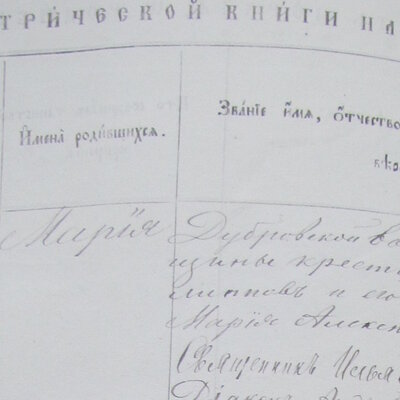 ТРИ́ЧЕСКОЙ КНИ́ГИ НА
Имена̀ роди́вшихся.
Зва́нїе и҆́мѧ, ѻ҆́тчество
вѣ́ро
Марія
Дубровской во
щины кресть
и его
Марія Алекса
Священникъ Илья
Діаконъ